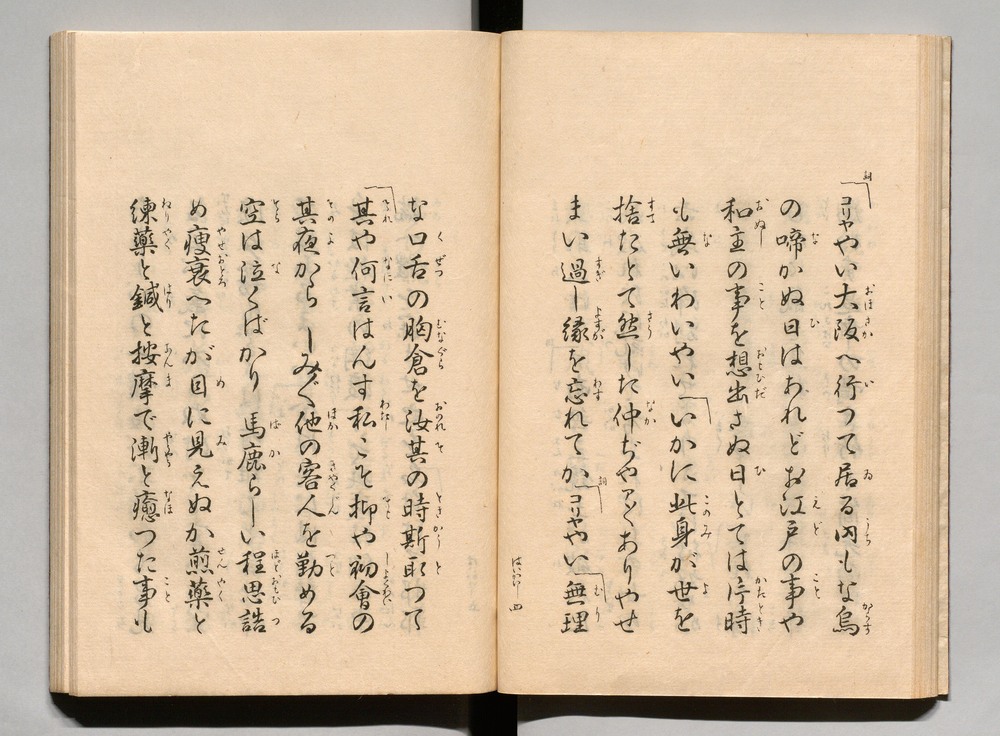 詞
コリャやい大阪へ行つて居る内もな烏
の啼かぬ日はあれどお江戸の事や
和主の事を想出さぬ日とては片時
も無いわいやいいかに此身が世を
捨たとて然した仲ぢやアくありやせ
まい過し縁を忘れてか詞コリャやい無理
はうた 四
な口舌の胸倉を汝其の時斯取つて
其や何言はんす私こそ抑や初會の
其夜からしみ〲他の客人を勤める
空は泣くばかり馬鹿らしい程思詰
め痩衰へたが目に見えぬか煎薬と
練薬と鍼と按摩で漸と癒つた事も